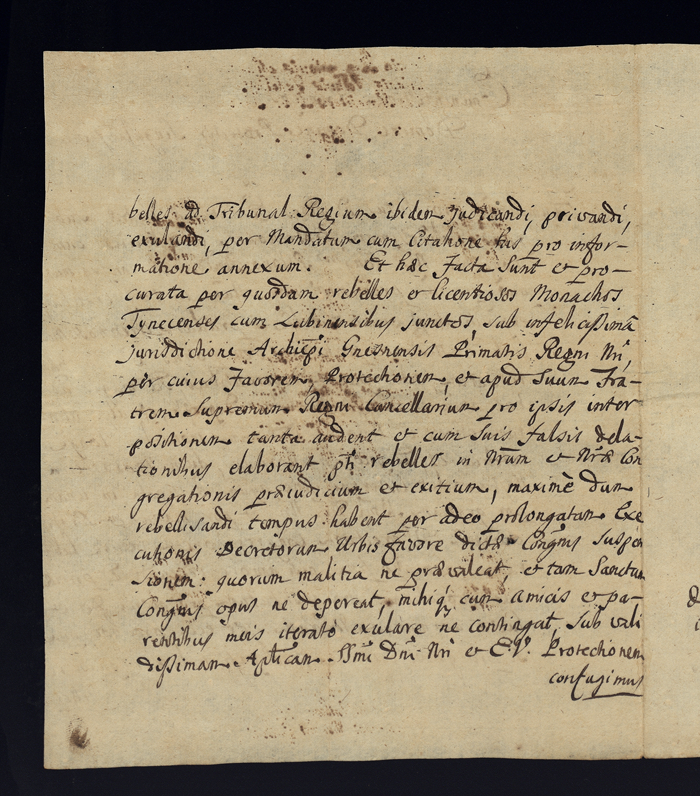 belles ad Tribunal Regium ibidem judicandi, privandi,
exulandi, per Mandatum cum Citatione his pro infor-
matione annexum. Et hæc facta sunt et pro-
curata per quosdam rebelles et licentiosos Monachos
Tynecenses cum Lubinensibus junctos, sub infelicissima
jurisdictione Archiepi Gnesnensis Primatis Regni Nri,
per cuius Favorem, Protectionem, et apud Suum Fra-
trem Supremum Regni Cancellarium pro ipsis inter
positionem tanta audent et cum suis falsis dela-
tionibus elaborant pti rebelles in Nrum et Nræ Con
gregationis præiudicium et exitium, maximè dum
rebellisandi tempus habent per adeo prolongatam Exe
cutionis Decretorum Urbis favore dictæ Congnis suspen
sionem: quorum malitia ne prævaleat, et tam Sanctum
Congnis opus ne depereat, mihiq cum amicis et pa-
rentibus meis iterato exulare ne contingat, sub vali
dissimam Aplicam SSmi Dni Nri et EV. Protectionem
confugimus